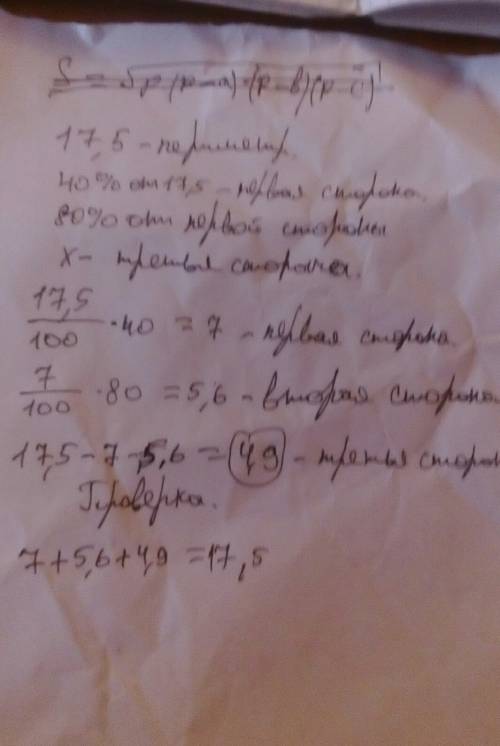 S = √p(p-a)·(p-в)(p-c)
17,5 - периметр.
40% от 17,5 - первая сторона.
80% от первой стороны
x - третья сторона.
17,5/100 · 40 = 7 - первая сторона.
7/100 · 80 = 5,6 - вторая сторона.
17,5 - 7 - 5,6 = 4,9 - третья сторон
Проверка.
7 + 5,6 + 4,9 = 17,5